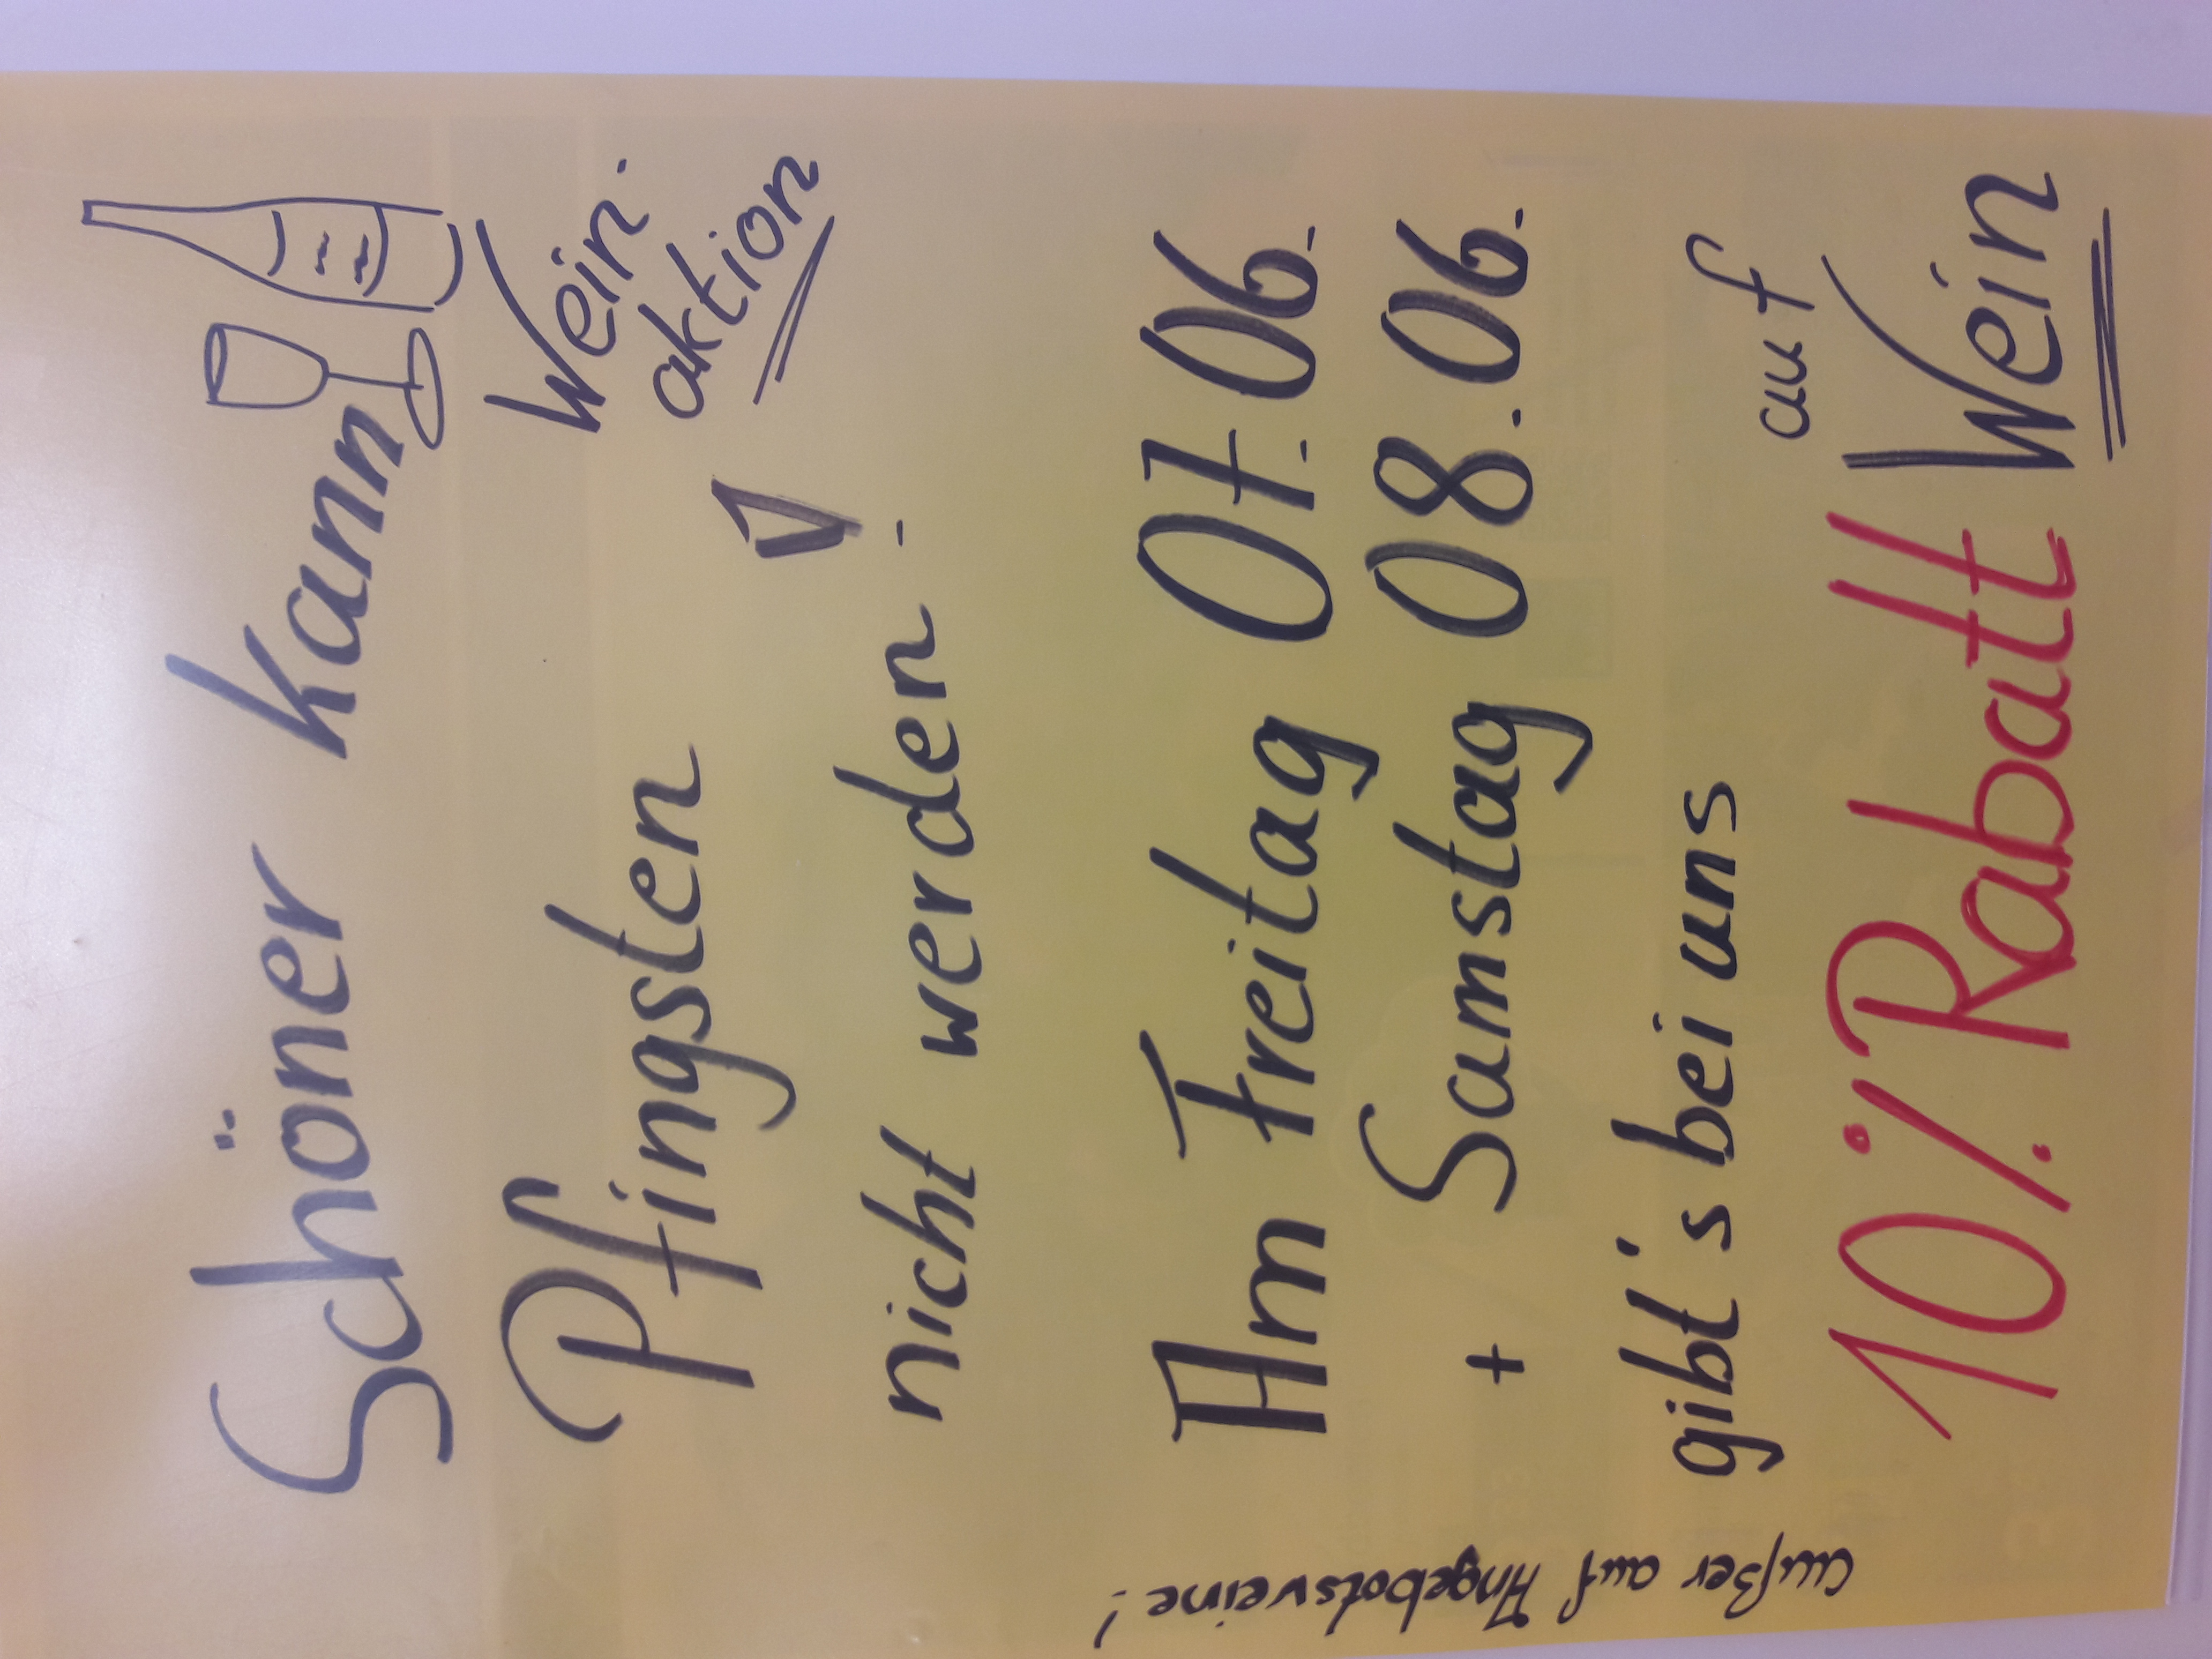 Schöner kann
Pfingsten
nicht werden.
Wein-
aktion
Am Freitag 07.06.
+ Samstag 08.06.
gibt's bei uns
10% Rabatt auf
Wein
außer auf Angebotsweine!